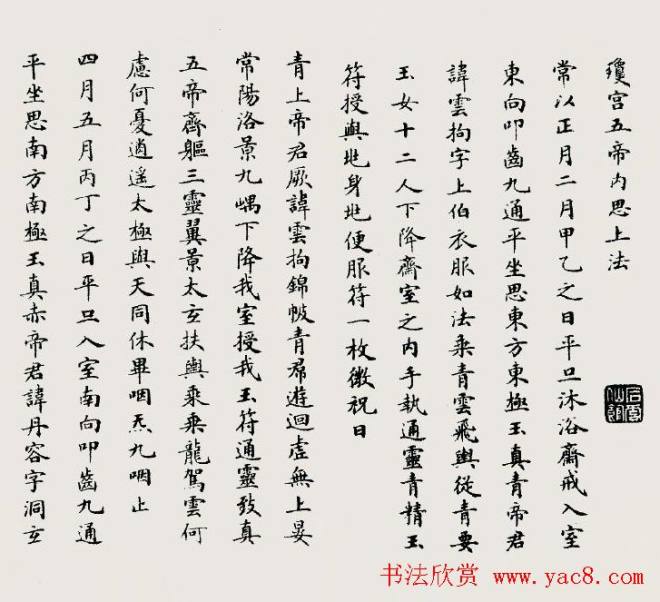 瓊宮五帝內思上法
常以正月二月甲乙之日平旦沐浴齋戒入室
東向叩齒九通平坐思東方東極玉真青帝君
諱雲拘字上伯衣服如法乘青雲飛輿從青要
玉女十二人下降齋室之內手執通靈青精玉
符授與兆身兆便服符一枚微祝曰
青上帝君厥諱雲拘錦帔青帬遊迴虛無上晏
常陽洛景九嵎下降我室授我玉符通靈致真
五帝齊軀三靈翼景太玄扶輿乘乘龍駕雲何
慮何憂遒遥太極與天同休畢咽炁九咽止
四月五月丙丁之日平旦入室南向叩齒九通
平坐思南方南極玉真赤帝君諱丹容字洞玄
书法欣赏 www.yac8.com